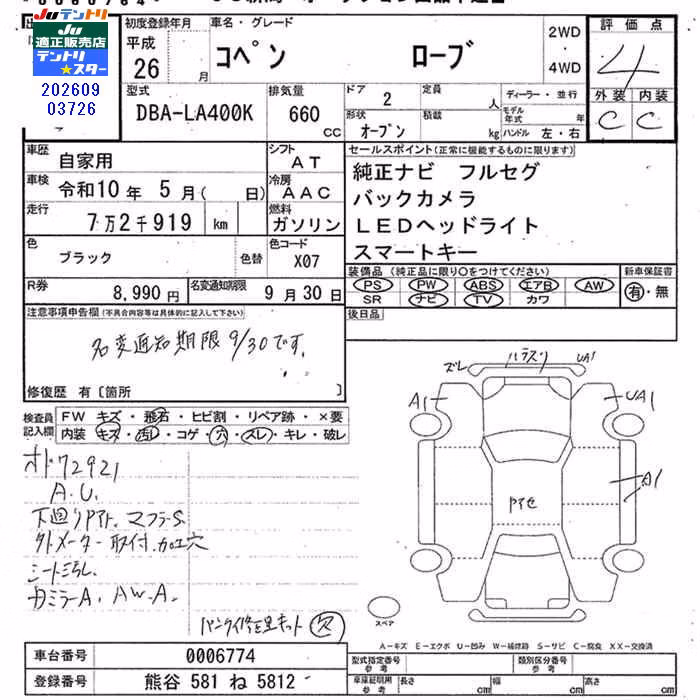 Juテントリ
JU
適正販売店
テントリ
★スター
202609
03726
初度登録年月
平成
26 月
車名・グレード
コペン ローブ
2WD
・
4WD
評価点
4
外装 内装
C C
型式
DBA-LA400K
排気量
660
CC
ドア
2
定員
人
形状
オープン
積載
kg
ディーラー・並行
モデル年式 年
ハンドル 左・右
車歴
自家用
シフト
AT
車検
令和10年 5月( 日)
冷房
AAC
走行
7万2千919 km
燃料
ガソリン
色
ブラック
色替
色コード
X07
R券
8,990円
名変通知期限
9月30日
セールスポイント(正常に機能するものに限ります)
純正ナビ フルセグ
バックカメラ
LEDヘッドライト
スマートキー
装備品(純正品に限り○をつけてください)
PS PW ABS エアB AW
SR ナビ TV カワ
新車保証書
有・無
後日品
注意事項申告欄(不具合内容は具体的に記入して下さい)
名変通知期限9/30です。
修復歴 有〔箇所 〕
検査員
記入欄
FW キズ・飛石・ヒビ割・リペア跡・×要
内装 キズ・汚レ・コゲ・穴・スレ・キレ・破レ
オド72921
A.U.
下廻りアト、マフラーS、
外メーター取付、加工穴
シート
ミラーA、AW-A、
パンク修理キット 欠
ズレ
UA1
A1
UA1
A1
スペア
A-キズ E-エクボ U-凹み W-補修跡 S-サビ C-腐食 XX-交換済
車台番号
0006774
登録番号
熊谷 581 ね 5812
型式指定番号
参考
類別区分番号
参考
車庫証明用
参考
長さ cm
幅 cm
高さ cm